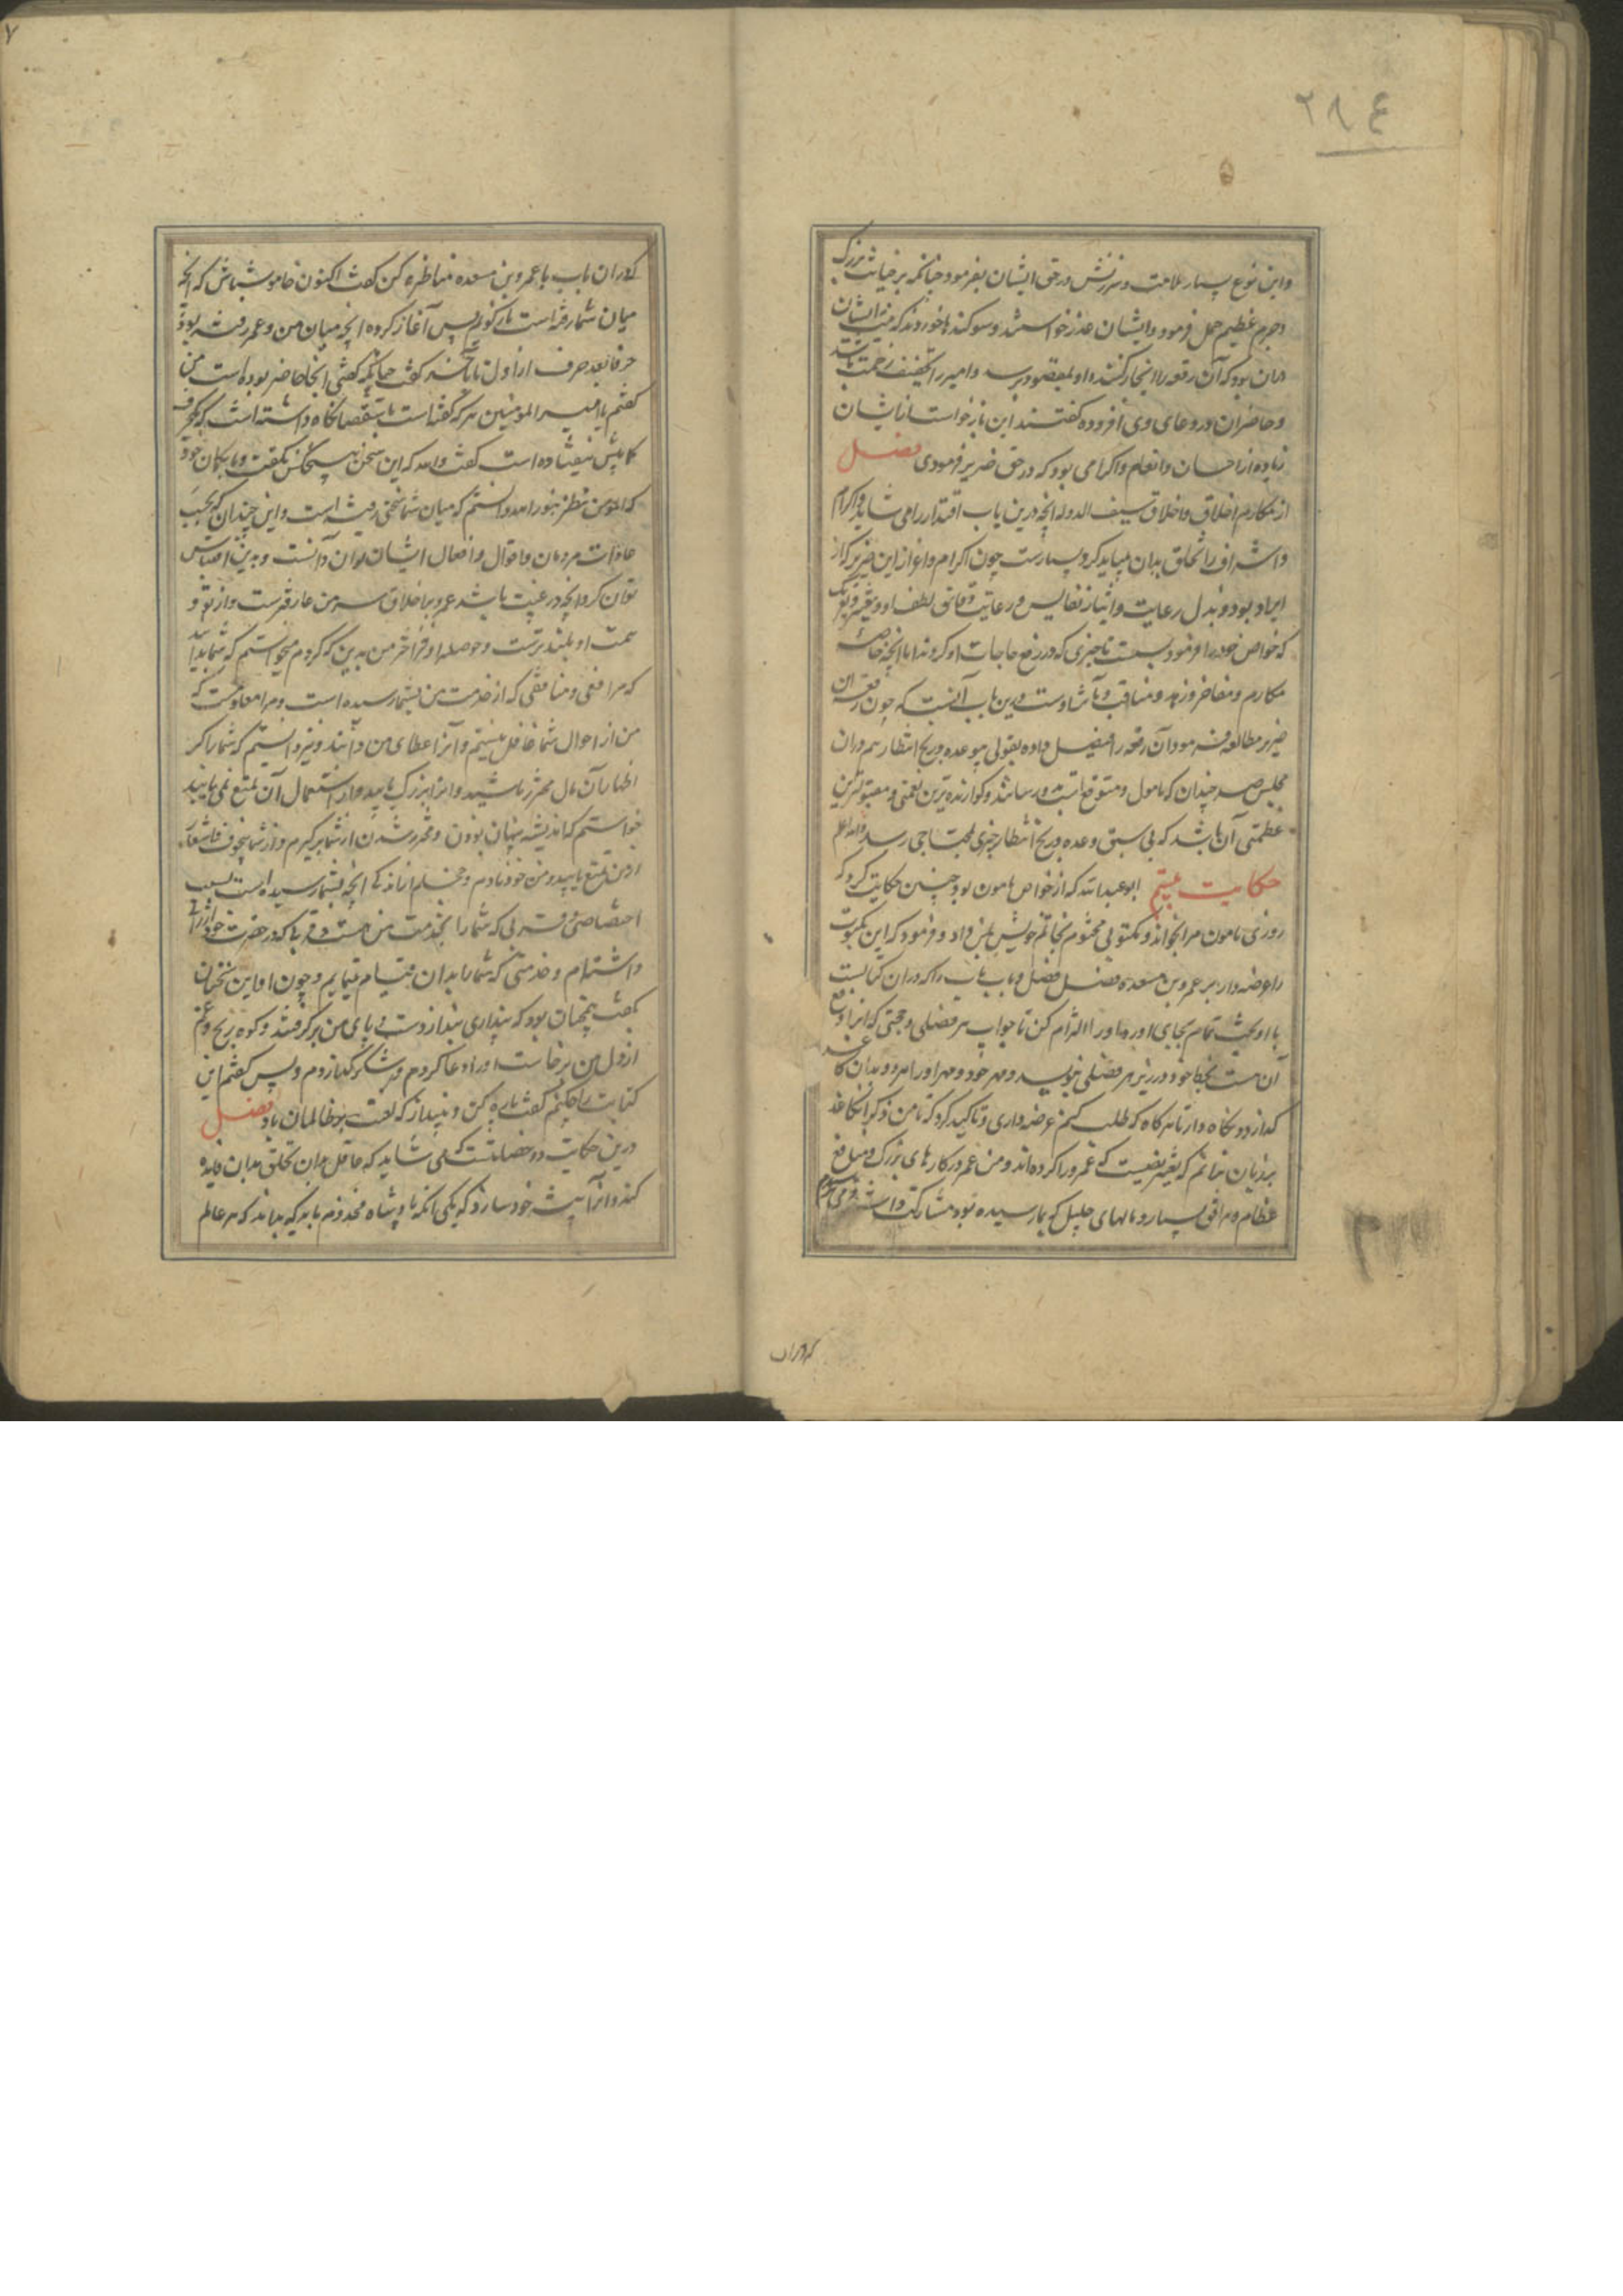 ۲۸۴
واین نوع بسیار ملامت و سرزنش در حق ایشان بفرمود چنانکه بر خیانت بزرگ
و جرم عظیم حمل فرمود و ایشان عذر خواستند و سوکندها خوردند که نیت ایشان
همان بود که آن رقعه را انجاز کنند و او بمقصود برسد و امیر را تخفیف زحمت باشد
و حاضران در دعای وی افزوده گفتند این بازخواست از ایشان
زیاده از احسان و انعام و اکرامی بود که در حق ضریر فرمودی فصل
از مکارم اخلاق و اخلاق سیف الدوله آنچه درین باب اقتدا را می شاید و اکرام
و اشراف را تخلق بدان میباید کرد بسیارست چون اکرام و اعزاز این ضریر که از
ایراد بود و بذل رعایت و ایثار نفایس و رعایت دقائق لطف او و تعییر و تعریک
که خواص خود را فرمود بسمت تاخیری که در رفع حاجات او کردند اما آنچه خاصه
مکارم و مفاخر و زبده مناقب و مآثر اوست درین باب آنست که چون رقعه آن
ضریر مطالعه فرمود آن رقعه را تفصیل داده بقولی بی وعده و رنج انتظار هم در آن
مجلس صد چندان که مامول و متوقع داشت بدو رسانید و گوارنده ترین نعمتی و مقبولترین
عظمتی آن باشد که بی سبق وعده و رنج انتظار چیزی بمحتاجی رسد والله اعلم
حکایت بیستم ابو عبدالله که از خواص مامون بود چنین حکایت کرد که
روزی مامون مرا بخواند و مکتوبی مختوم بخاتم خویش بمن داد و فرمود که این مکتوب
را عرضه دار بر عمرو بن مسعده فصل فصل و باب باب را که در آن کتابست
با او بحث تمام بجای آور و او را الزام کن تا جواب هر فصلی و حجتی که او را دفع
آن هست بخط خود در زیر هر فصلی بنویسد و مهر خود و مهر او را هر دو بدان کاغذ
گذارد و نگاه دار تا هر گاه که طلب کنم عرضه داری و تاکید کرد که تا من ذکر آن کاغذ
بر زبان نرانم که تغییر نصیحت که عمرو را کرده اند و من عمرو در کارهای بزرگ و منافع
عظام و مرافق بسیار و مالهای جلیل که بما رسیده بود مشارکت داشتیم و می ترسیدم
که در آن
که در آن باب با عمرو بن مسعده مناظره کن گفت اکنون خاموش باش که آنچه
میان شما رفته است بازگویم پس آغاز کرد و آنچه میان من و عمرو رفته بود
حرفا بعد حرف از اول تا بآخر گفت چنانکه گفتی آنجا حاضر بوده است من
گفتم یا امیر المومنین هر که گفته است باستقصا نگاه داشته است که حرفی
کما بیش نیفتاده است گفت والله که این سخن هیچکس نگفت و ما بگمان خود
که اکنون من نظر بنور الله دانستم که میان شما سخنی رفته است و این چندان که بحسب
عادات مردمان و اقوال و افعال ایشان توان دانست و بدین اقتباس
توان کرد آنچه در غیبت باشد عمرو باخلاق من عارفترست و از تو و
همت او بلندترست و حوصله او فراختر من بدین که کردم میخواستم که شما بدانید
که مرافقی و منافعی که از خدمت من بشما رسیده است و مرا معلومست که
من از احوال شما غافل نیستم و آنرا عطای من دانند و نیز دانستم که شما را که
اظهار آن مال محترز باشید و آنرا بزرگ یابید و از استعمال آن تمتع نمی یابید
خواستم که اندیشه پنهان بودن و محترز شدن از شما برگیرم و از شما خوف
و من تمتع یابید و من خود نادم و خجلم از اندکی آنچه بشما رسیده است بسبب
اختصاصی و قربتی که شما را بخدمت من هست و قرباکه در حضرت خود ارزانی
داشته ام و خدمتی که شما را بدان قیام مینمایم و چون او این سخنان
بگفت چنان بود که پنداری بند از دست و پای من برگرفتند و کوه رنج و غم
از دل من برخاست او را دعا کردم و بر شکر گذاردم و پس گفتم این
کتابت را چکنم گفت پاره کن و بینداز که لعنت بر ظالمان باد فصل
درین حکایت دو خصلتست که می شاید که عاقل بدان تخلق بدان فایده
کند و آنرا پیشه خود سازد که یکی آنکه پادشاه مخدوم باید که بداند که هر عامل